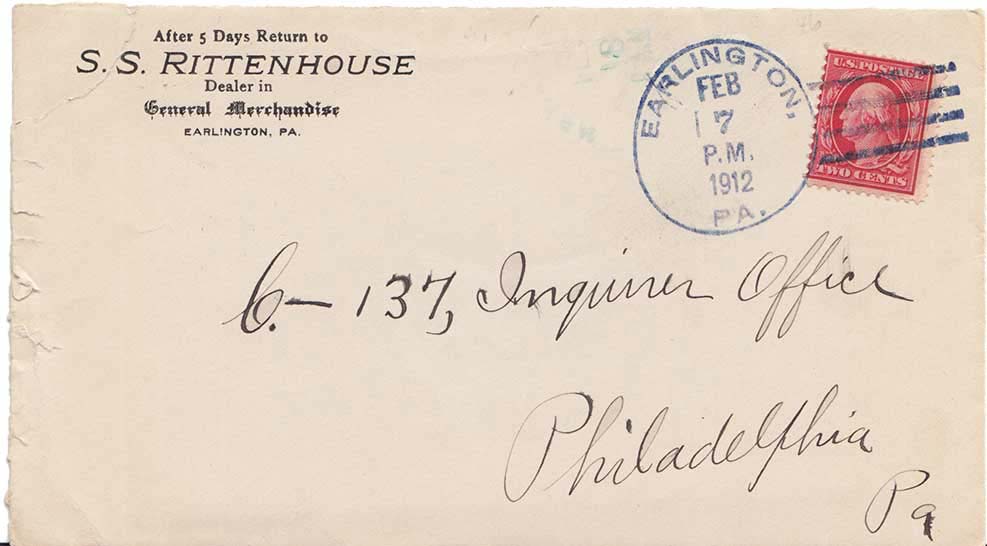 After 5 Days Return to
S. S. RITTENHOUSE
Dealer in
General Merchandise
EARLINGTON, PA.
EARLINGTON,
FEB
7
P.M.
1912
PA.
U.S. POSTAGE
TWO CENTS
C.— 137, Inquirer Office
Philadelphia
Pa